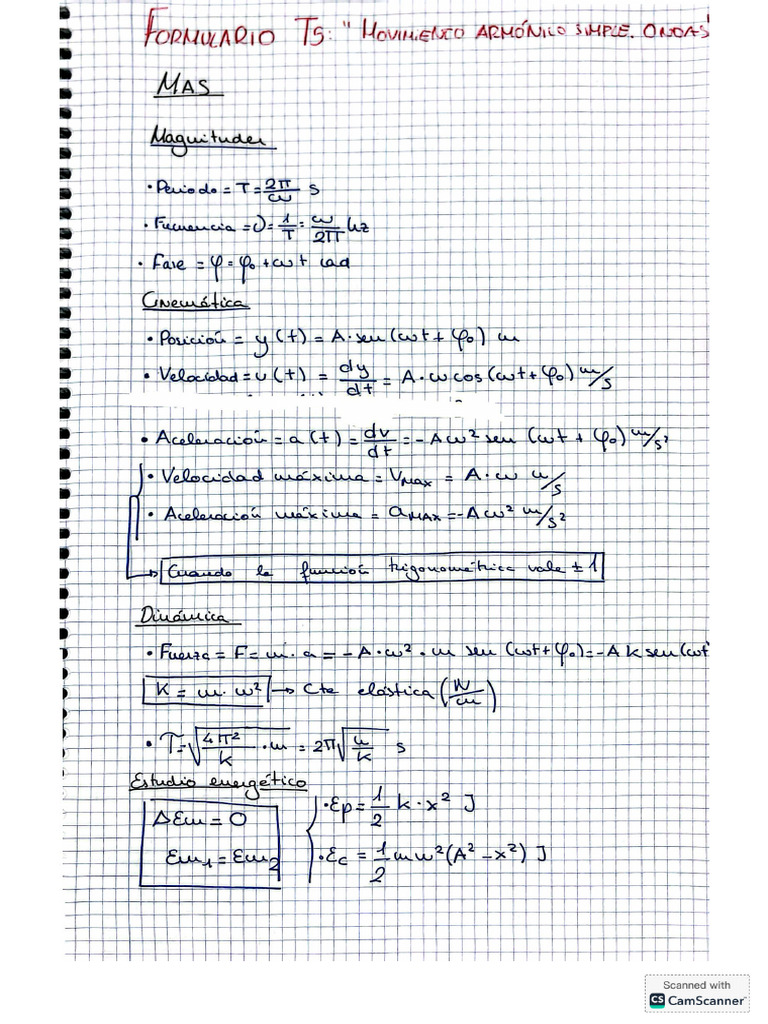 FORMULARIO T5: "MOVIMIENTO ARMÓNICO SIMPLE. ONDAS"
MAS
Magnitudes
• Periodo = T = 2π/ω s
• Frecuencia = ν = 1/T = ω/2π Hz
• Fase = φ = φ₀ + ωt rad
Cinemática
• Posición = y(t) = A·sen(ωt + φ₀) m
• Velocidad = v(t) = dy/dt = A·ω cos(ωt + φ₀) m/s
• Aceleración = a(t) = dv/dt = -Aω² sen(ωt + φ₀) m/s²
• Velocidad máxima = VMAX = A·ω m/s
• Aceleración máxima = aMAX = -Aω² m/s²
→ Cuando la función trigonométrica vale ± 1
Dinámica
• Fuerza = F = m·a = -A·ω²·m sen(ωt + φ₀) = -A k sen(ωt
K = m·ω² → Cte elástica (N/m)
• T = √(4π²/k · m) = 2π√(m/k) s
Estudio energético
ΔEm = 0
Em₁ = Em₂
• Ep = 1/2 k·x² J
• Ec = 1/2 mω²(A² - x²) J
Scanned with
CS CamScanner